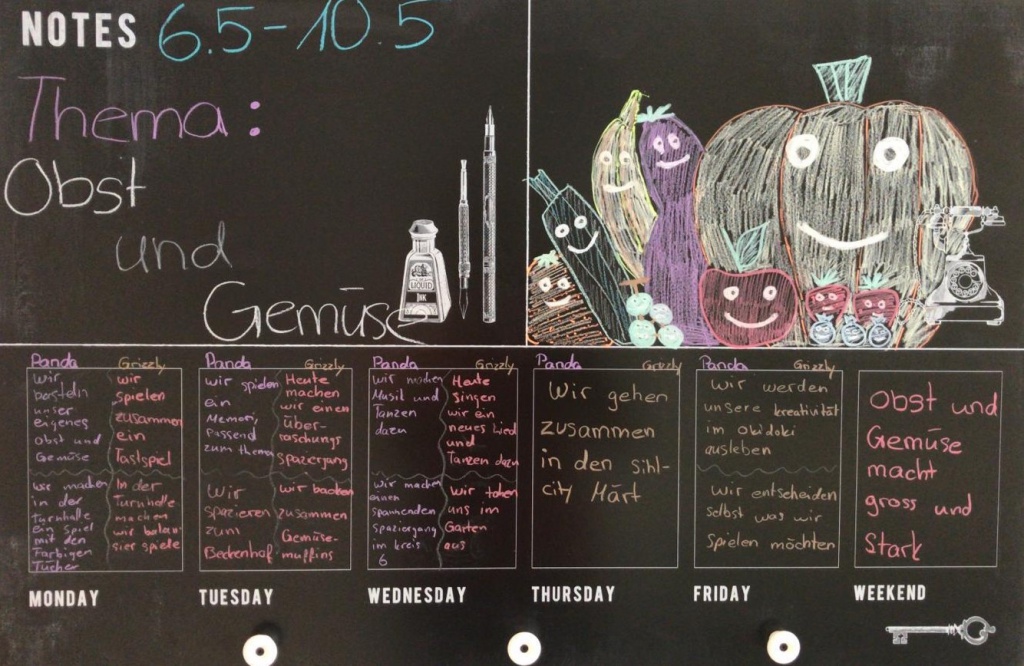 NOTES 6.5-10.5
Thema:
Obst
und
Gemüse
LIQUID
INK
Panda
Wir
basteln
unser
eigenes
Obst und
Gemüse
Wir machen
in der
Turnhalle
ein Spiel
mit den
Farbigen
Tücher
Grizzly
wir
spielen
zusammen
ein
Tastspiel
In der
Turnhalle
machen
wir balan-
sier spiele
MONDAY
Panda
wir spielen
ein
Memory
Passend
zum thema
Wir
spazieren
zum
Beckenhof
Grizzly
Heute
machen
wir einen
über-
raschungs
spaziergang
wir backen
zusammen
Gemüse-
muffins
TUESDAY
Panda
wir machen
Musik und
Tanzen
dazu
Wir machen
einen
spannenden
Spaziergang
im kreis
6
Grizzly
Heute
Singen
wir ein
neues Lied
und
Tanzen dazu
Wir toben
uns im
Garten
aus
WEDNESDAY
Panda Grizzly
Wir gehen
zusammen
in den sihl-
city Märt
THURSDAY
Panda Grizzly
Wir werden
unsere kreativität
im Okidoki
ausleben
Wir entscheiden
selbst was wir
Spielen möchten
FRIDAY
Obst und
Gemüse
macht
gross und
Stark
WEEKEND